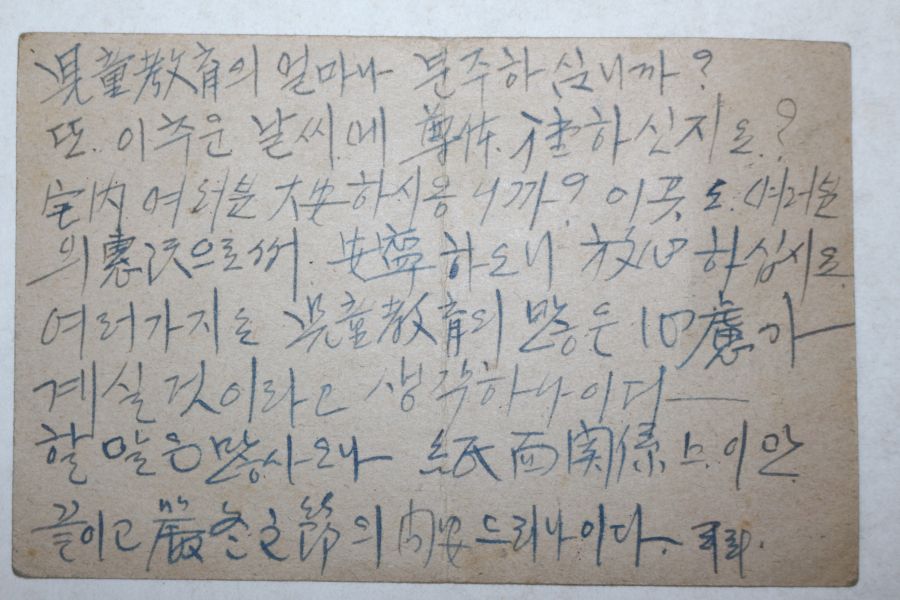 児童教育의 얼마나 분주하심니까?
또. 이추운 날씨에 尊体. 健하신지요.?
宅内 여러분 大安하시옵니까? 이곳도. 여러분
의 惠沢으로써. 安寧하오니 放心하십시요.
여러가지로 児童教育의 많은 心慮가
계실것이라고 생각하나이다—
할 말은 많사오나 紙面関係上 이만
끝이고 嚴冬之節의 問安드리나이다.